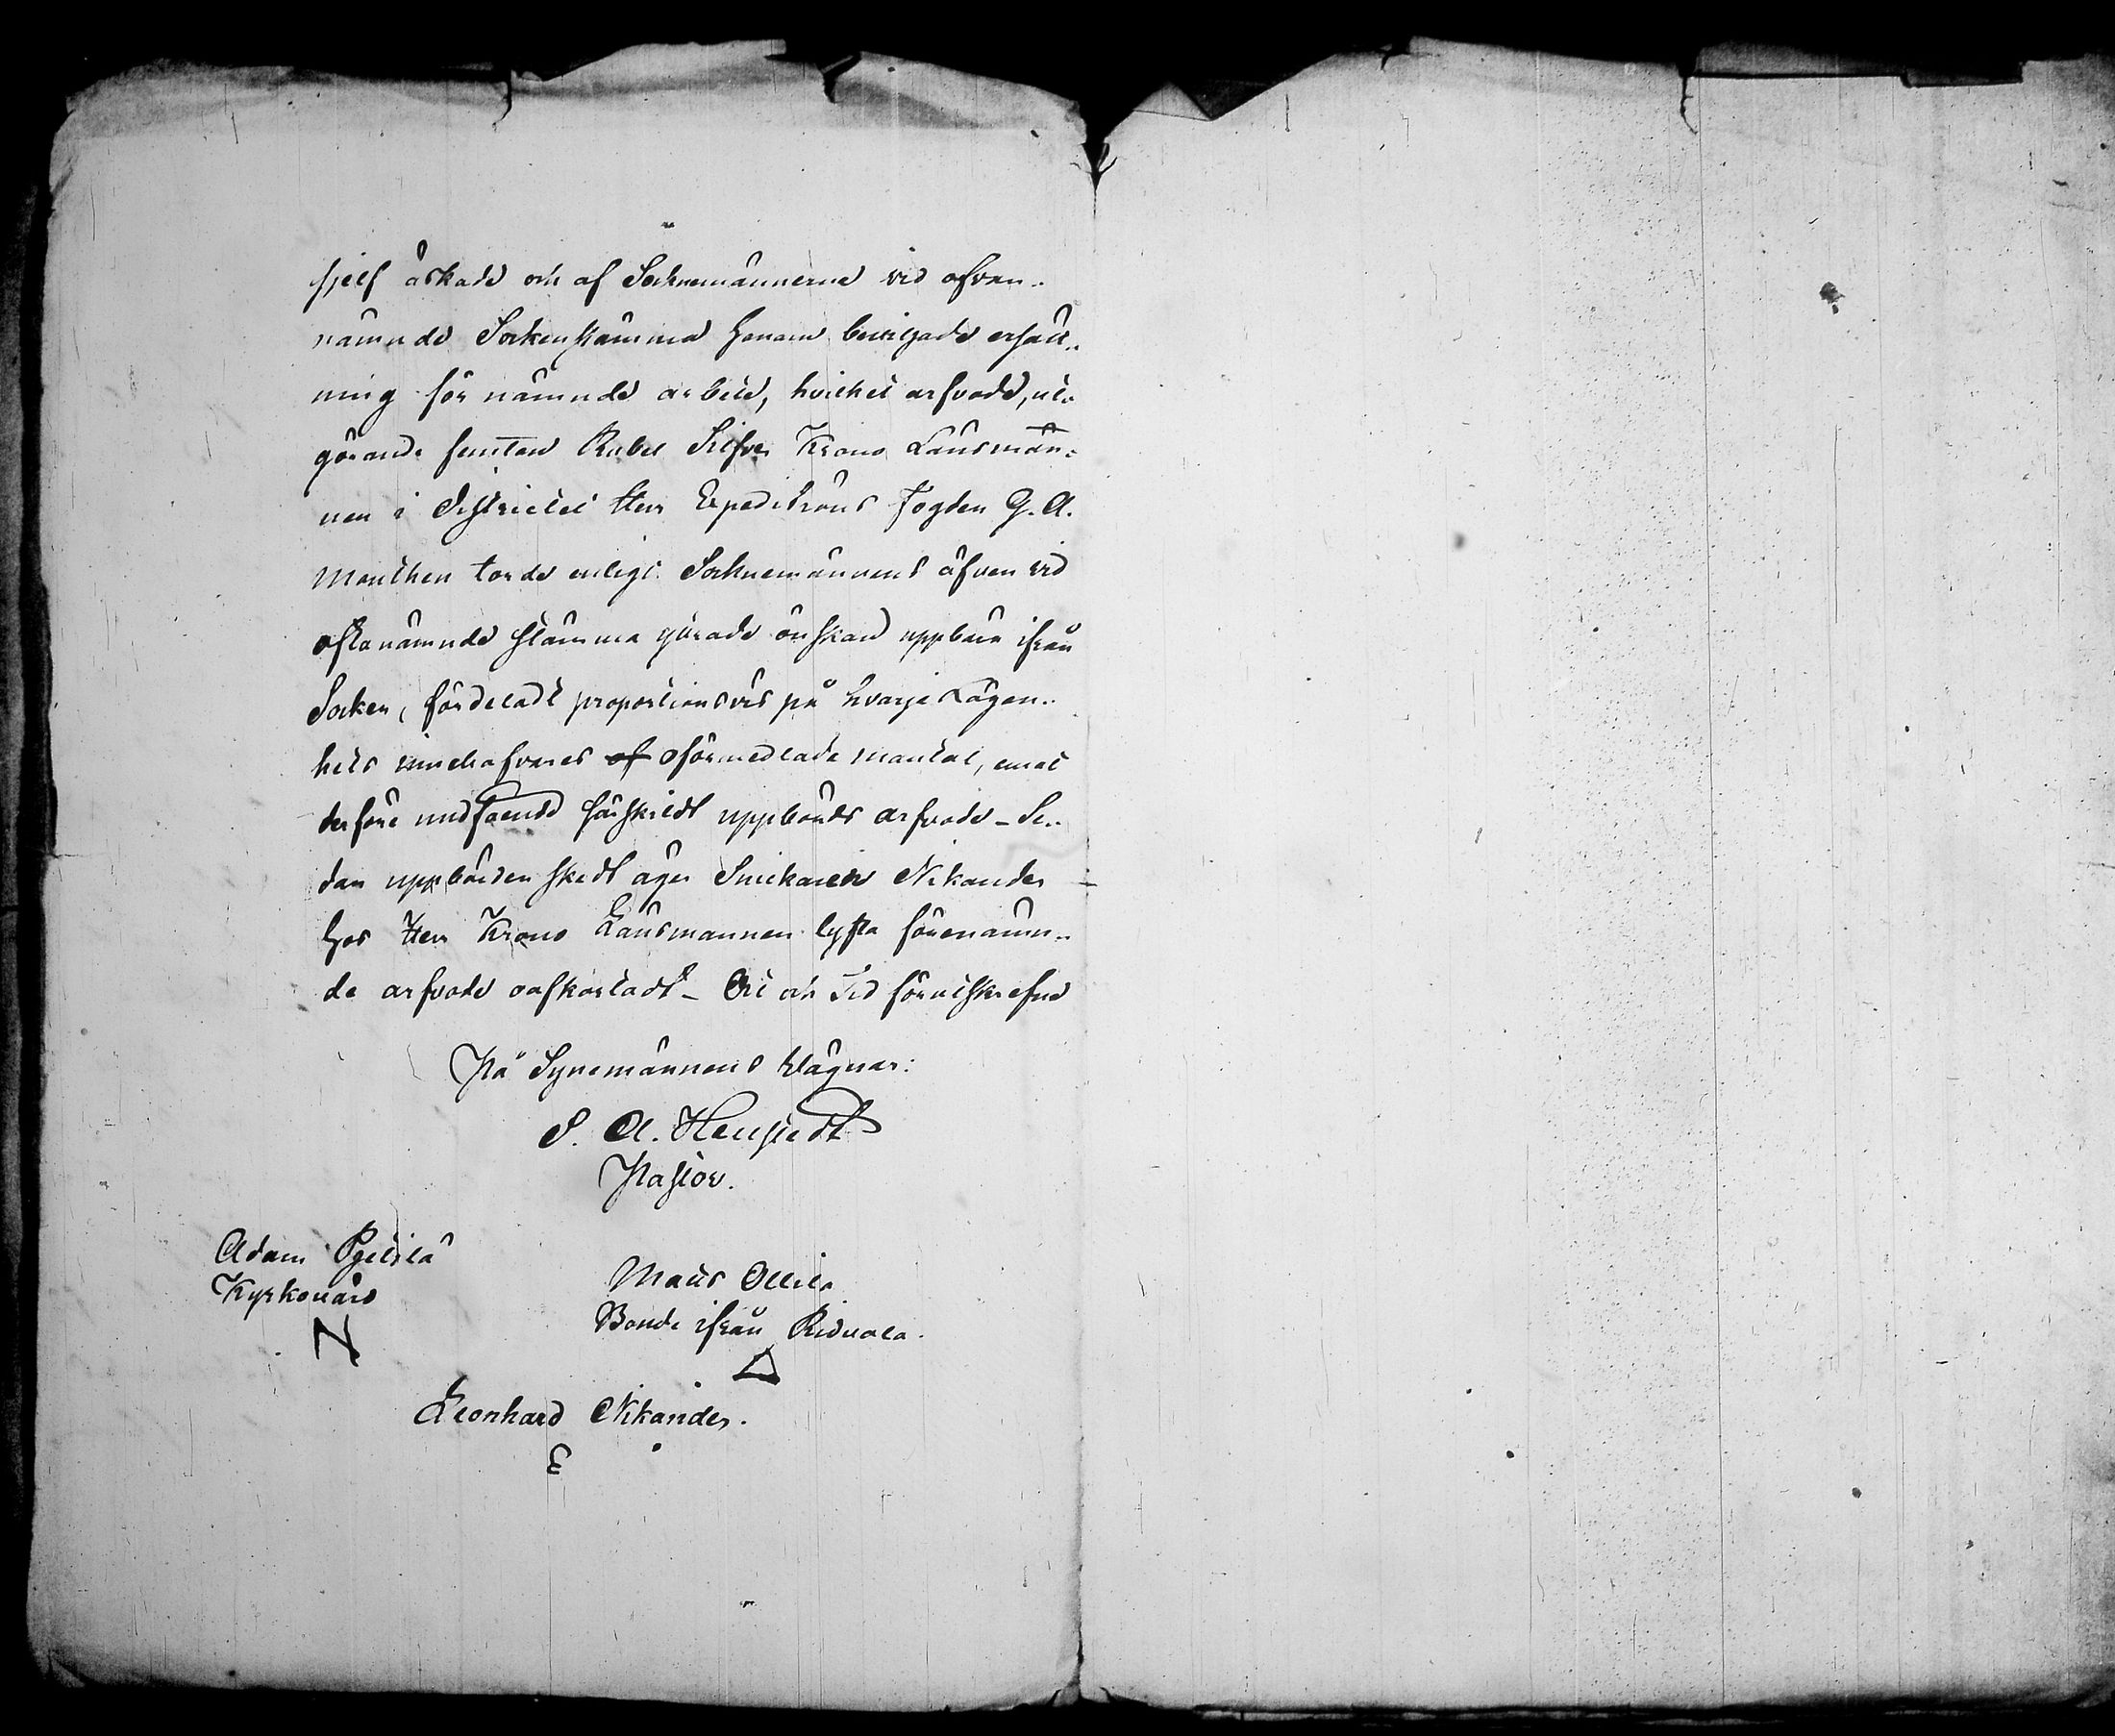 sjelf äskade och af Socknemännerne vid ofvan-
nämnde Sockenstämma honom beviljade ersätt-
ning för nämnde arbete, hvilket arfvode, ut-
görande femton Rubel Silfver Krono Länsmän-
nen i Districtet Herr Expeditions Fogden G. A.
Monthen torde enligt Socknemännens äfven vid
oftanämnde stämma gjorade önskan uppbära ifrån
Socken, fördeladt proportionsvis på hvarje Lägen-
hets innehafvares af oförmedlade mantal, emot
derföre undfående särskildt uppbörds arfvode - Se-
dan uppbörden skedt äger Snickaren Nikander
hos Herr Krono Länsmannen lyfta förenämn-
de arfvode oafkortadt - Ort och Tid förutskrefne
På Synemännens Vägnar:
S. A. Henstedt
Pastor.
Adam Pytsilä
Kyrkovärd
N
Matts Ollila
Bonde ifrån Ridvala.
Δ
Leonhard Nikander.